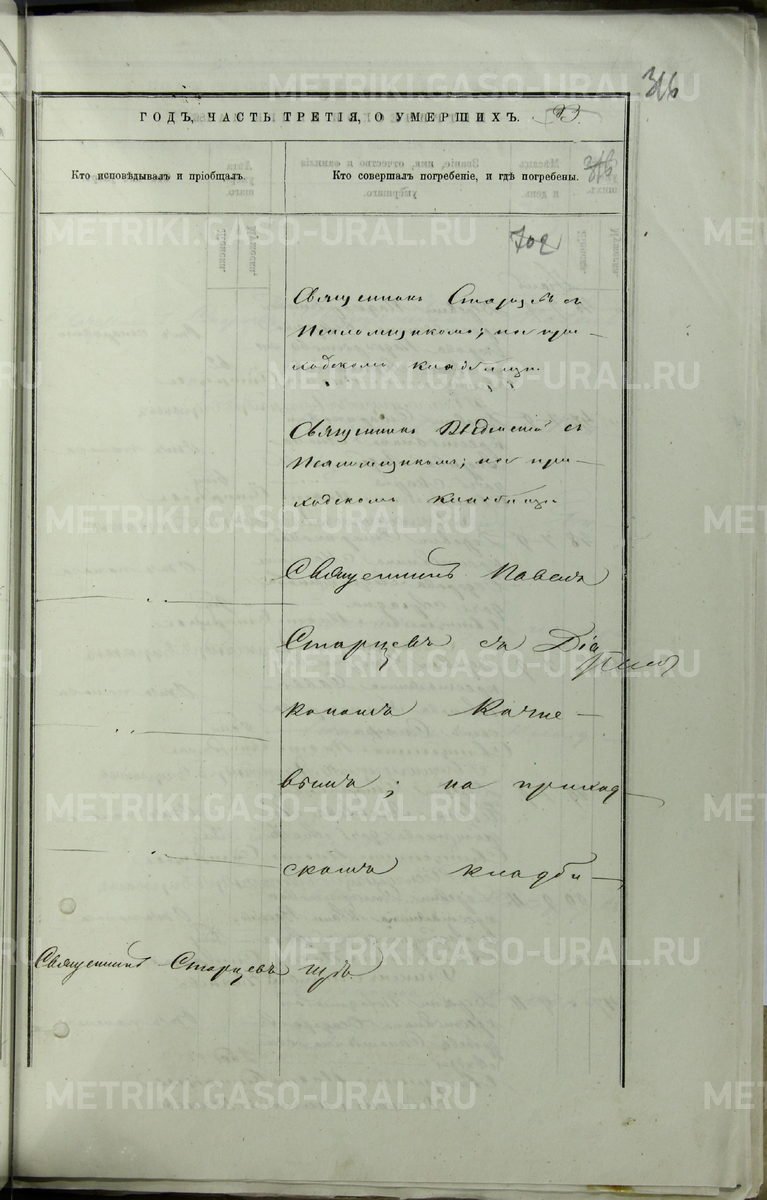 316
ГОДЪ, ЧАСТЬ ТРЕТІЯ, О УМЕРШИХЪ.
Кто исповѣдывалъ и пріобщалъ.
Кто совершалъ погребеніе, и гдѣ погребены.
702
Священникъ Старцевъ съ
Псаломщикомъ; на при-
ходскомъ кладбищѣ.
Священникъ Введенскій съ
Псаломщикомъ; на при-
ходскомъ кладбищѣ.
Священникъ Павелъ
Старцевъ съ Діа
кономъ
вымъ; на приход-
скомъ кладби-
Священникъ Старцевъ
щѣ.
METRIKI.GASO-URAL.RU